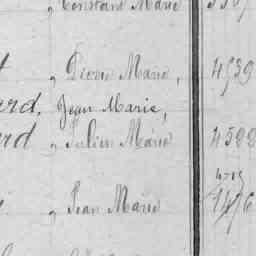 „ Constant Marie
„ Pierre Marie, 4539
ard, Jean Marie,
ard „ Julien Marie 4598
„ Jean Marie